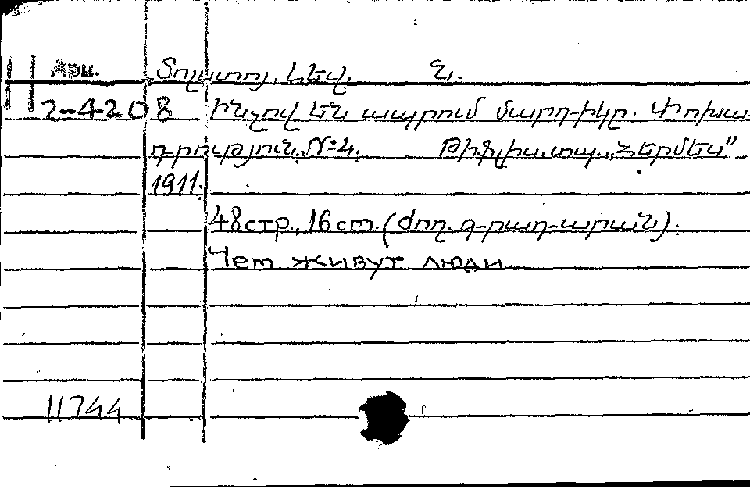 Арм. Տոլստոյ, Լեվ. Ն.
2-4208 Ինչով են ապրում մարդիկը. Փոխա
դրություն, №4. Թիֆլիս, տպ. „Հերմես"
1911.
48стр., 16см. (Ժող. գրադարան).
Чем живут люди
11744